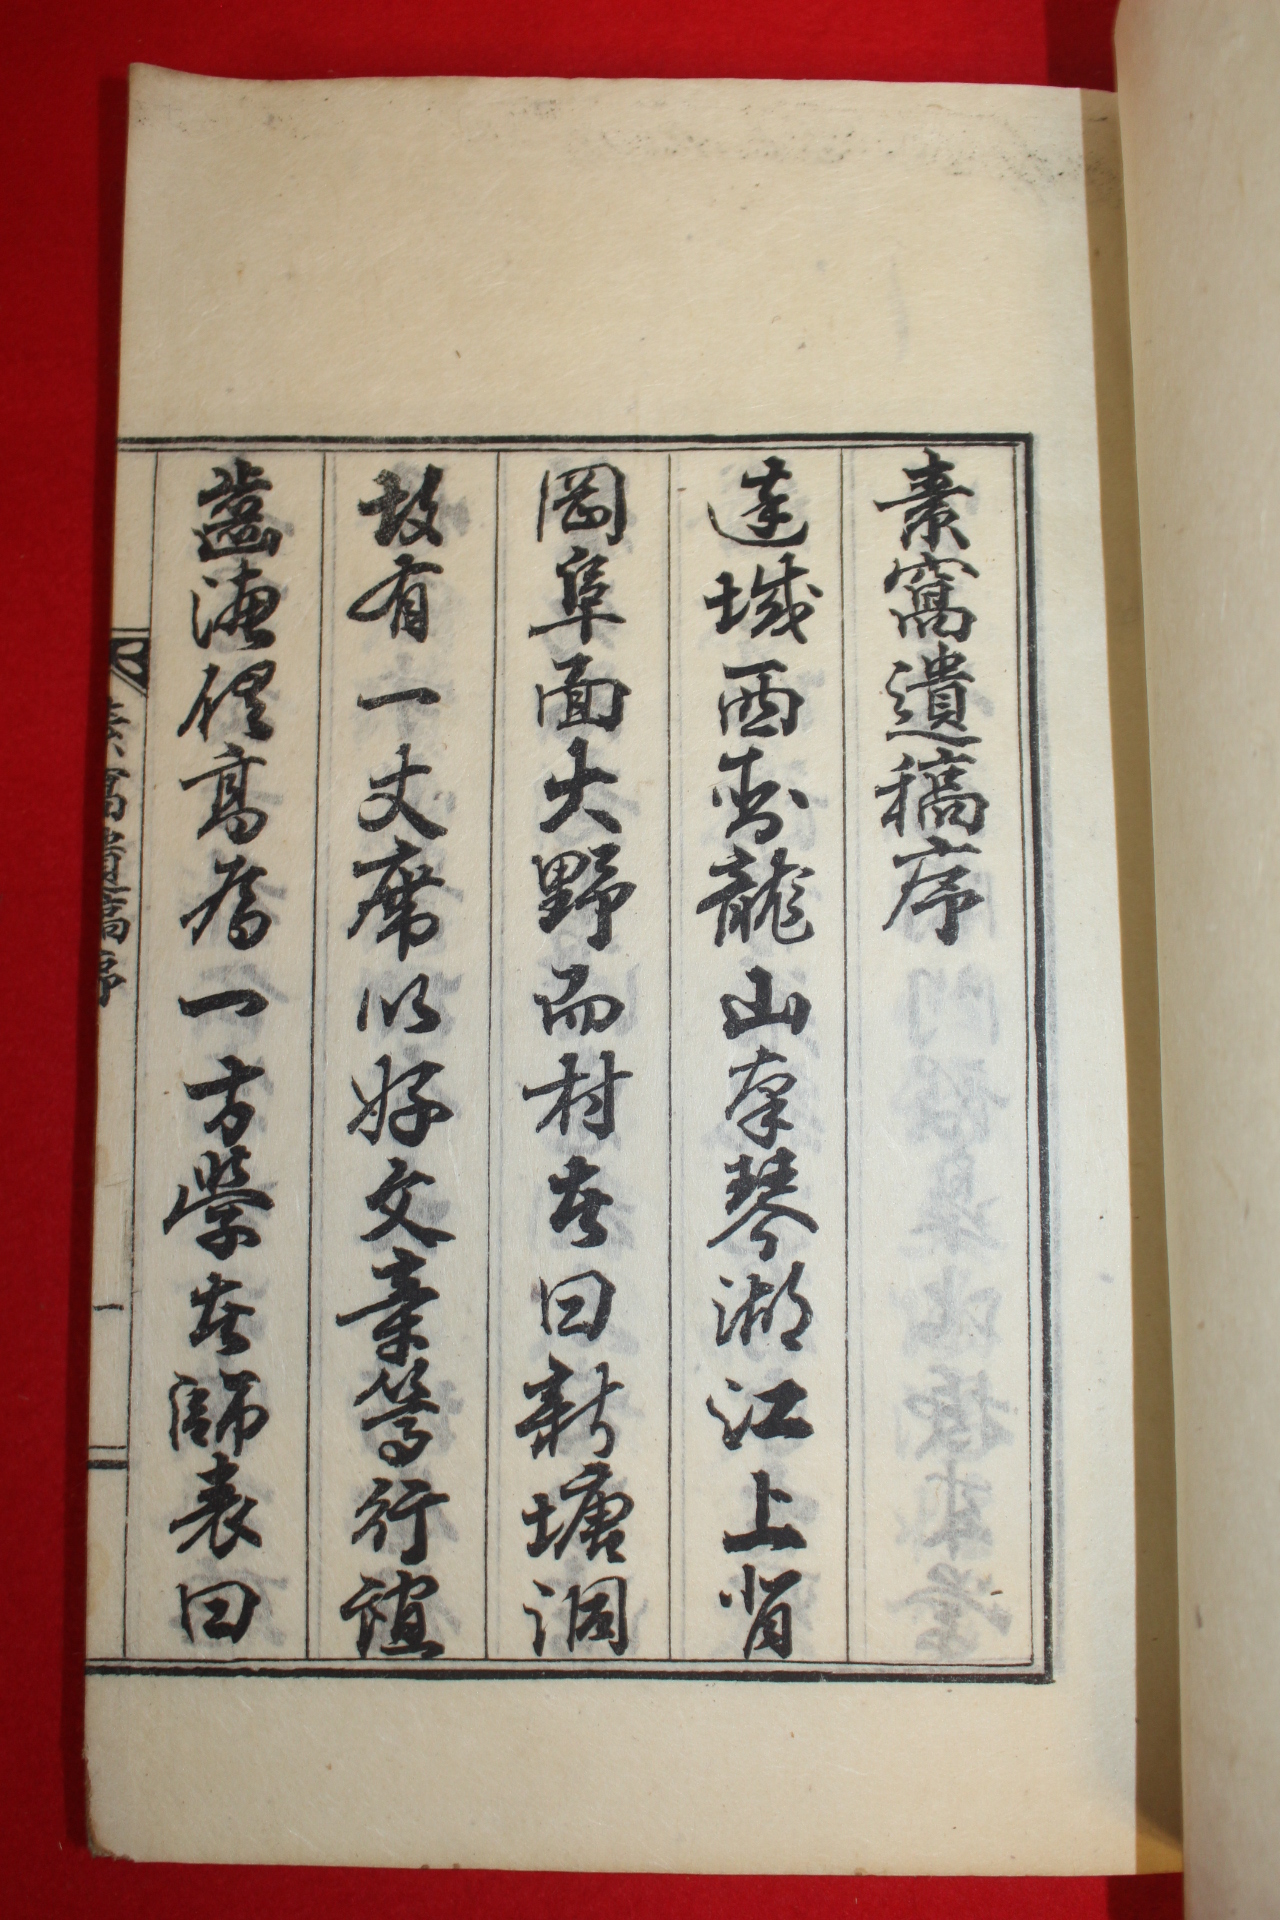 素窩遺稿序
達城西龍山南琴湖江上背
岡阜面大野而村者曰新塘洞
故有一丈席以好文章篤行誼
齒德高爲一方學者師表曰
素窩遺稿序
一